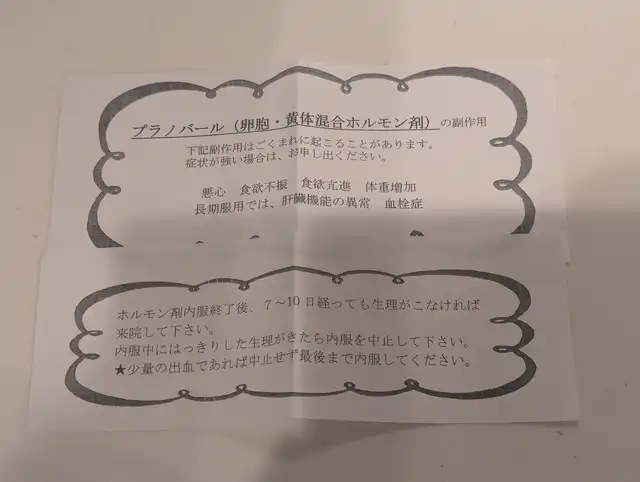 プラノバール(卵胞・黄体混合ホルモン剤)の副作用
下記副作用はごくまれに起こることがあります。
症状が強い場合は、お申し出ください。
悪心 食欲不振 食欲亢進 体重増加
長期服用では、肝臓機能の異常 血栓症
ホルモン剤内服終了後、7～10日経っても生理がこなければ
来院して下さい。
内服中にはっきりした生理がきたら内服を中止して下さい。
★少量の出血であれば中止せず最後まで内服してください。